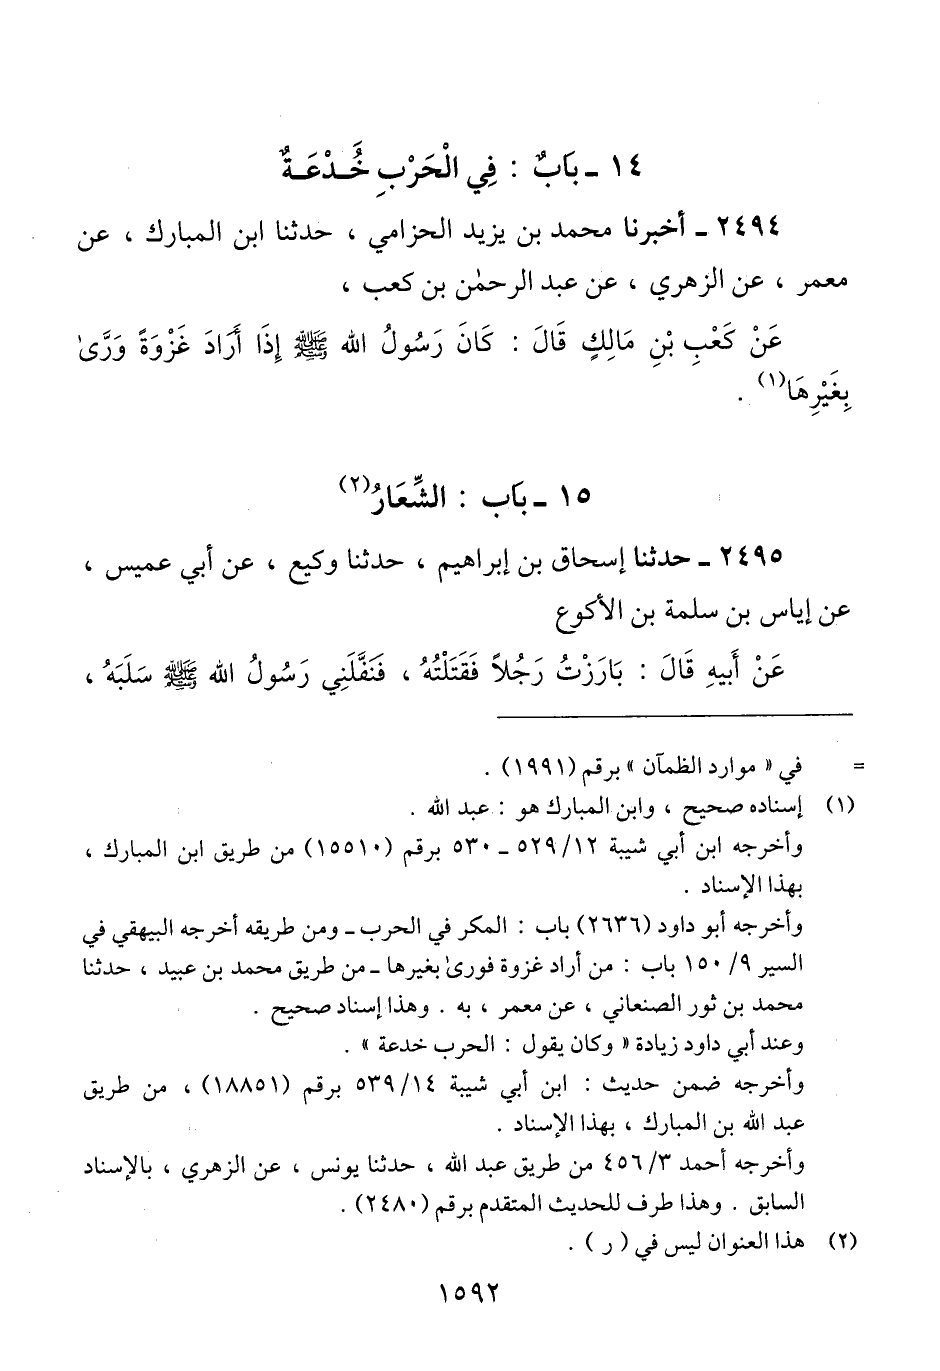 ١٤ ـ بَابٌ : فِي الْحَرْبِ خُدْعَةٌ
٢٤٩٤ ـ أخبرنا محمد بن يزيد الحزامي ، حدثنا ابن المبارك ، عن
معمر ، عن الزهري ، عن عبد الرحمٰن بن كعب ،
عَنْ كَعْبِ بْنِ مَالِكٍ قَالَ : كَانَ رَسُولُ الله ﷺ إِذَا أَرَادَ غَزْوَةً وَرَّىٰ
بِغَيْرِهَا(١) .
١٥ ـ بَاب : الشِّعَارُ(٢)
٢٤٩٥ ـ حدثنا إسحاق بن إبراهيم ، حدثنا وكيع ، عن أبي عميس ،
عن إياس بن سلمة بن الأكوع
عَنْ أَبيهِ قَالَ : بَارَزْتُ رَجُلاً فَقَتَلْتُهُ ، فَنَفَّلَنِي رَسُولُ الله ﷺ سَلَبَهُ ،
= في « موارد الظمآن » برقم (١٩٩١) .
(١) إسناده صحيح ، وابن المبارك هو : عبد الله .
وأخرجه ابن أبي شيبة ١٢/ ٥٢٩ ـ ٥٣٠ برقم (١٥٥١٠) من طريق ابن المبارك ،
بهذا الإسناد .
وأخرجه أبو داود (٢٦٣٦) باب : المكر في الحرب ـ ومن طريقه أخرجه البيهقي في
السير ٩/ ١٥٠ باب : من أراد غزوة فورىٰ بغيرها ـ من طريق محمد بن عبيد ، حدثنا
محمد بن ثور الصنعاني ، عن معمر ، به . وهذا إسناد صحيح .
وعند أبي داود زيادة « وكان يقول : الحرب خدعة » .
وأخرجه ضمن حديث : ابن أبي شيبة ١٤/ ٥٣٩ برقم (١٨٨٥١) ، من طريق
عبد الله بن المبارك ، بهذا الإسناد .
وأخرجه أحمد ٣/ ٤٥٦ من طريق عبد الله ، حدثنا يونس ، عن الزهري ، بالإسناد
السابق . وهذا طرف للحديث المتقدم برقم (٢٤٨٠) .
(٢) هذا العنوان ليس في ( ر ) .
١٥٩٢